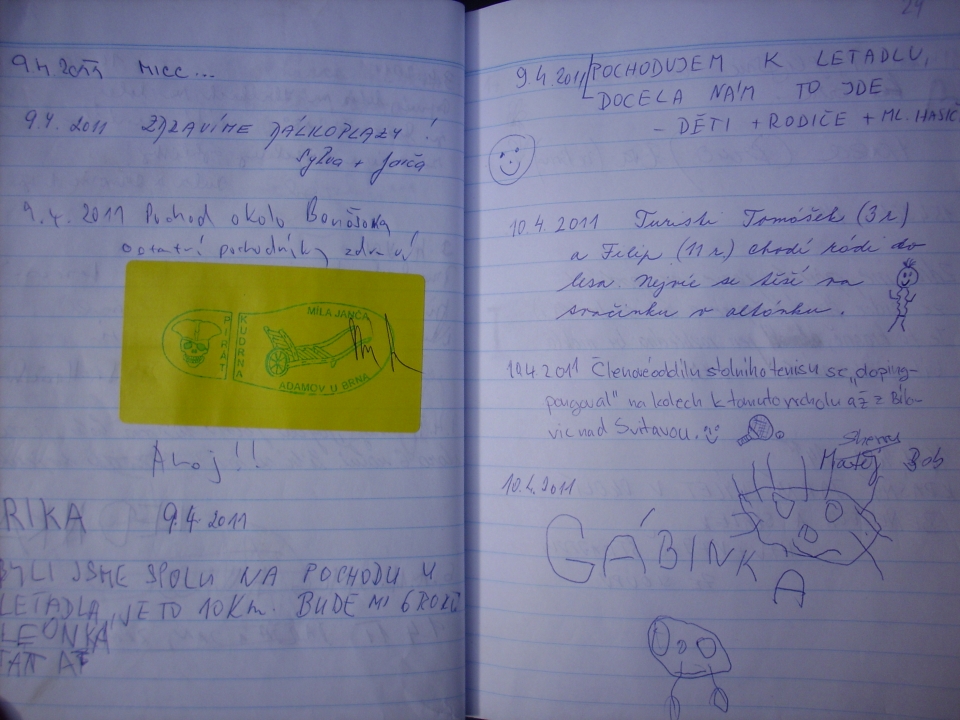 9.4.2011 MICC...
9.4. 2011 ZDRAVÍME DÁLKOPLAZY !
Sylva + Janča
9.4. 2011 Pochod okolo
ostatní pochodníky zdraví
PIRÁT
KUDRNA
MÍLA JANČA
ADAMOV U BRNA
Ahoj!!
RIKA 9.4 2011
BYLI JSME SPOLU NA POCHODU U
LETADLA, JE TO 10Km. BUDE MI 6 ROKŮ
LEONKA
24
9.4.2011 POCHODUJEM K LETADLU,
DOCELA NÁM TO JDE
- DĚTI + RODIČE + ML. HASIČ
10.4.2011 Turisti Tomášek (3 r)
a Filip (11 r.) chodí rádi do
lesa. Nejvíc se těší na
svačinku v altánku.
10.4.2011 Členové oddílu stolního tenisu se „doping-
pongoval" na kolech k tomuto vrcholu až z Bílo-
vic nad Svitavou.
Matěj Bob
10.4.2011
GÁBINKA